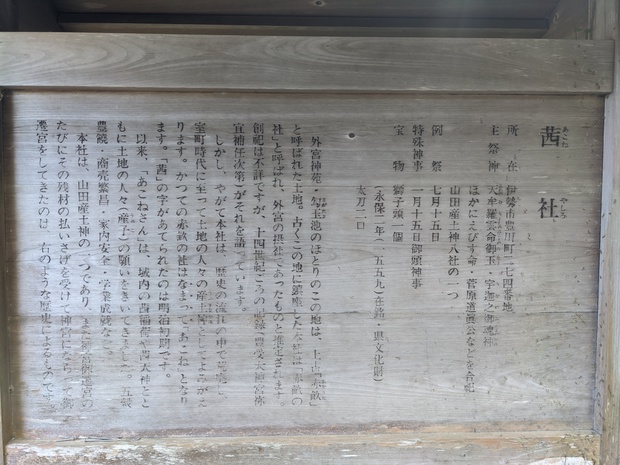 茜社
あこね やしろ
所在 伊勢市豊川町一七四番地
主祭神 天牟羅雲命御玉・宇迦之御魂神
ほかにえびす命・菅原道真公などを合祀
山田産土神八社の一つ
例祭 七月十五日
特殊神事 一月十五日御頭神事
宝物 獅子頭一個
(永保二年(一五五九)在銘・県文化財)
太刀二口
外宮神苑・勾玉池のほとりのこの地は、上古「赤畝」
と呼ばれた土地。古くこの地に鎮座した本社は「赤畝の
社」と呼ばれ、外宮の摂社であったものと推定されます。
創祀は不詳ですが、十四世紀ごろの記録(豊受大神宮祢
宜補任次第)がそれを語っています。
しかし、やがて本社は、歴史の流れの中で
室町時代に至って土地の人々の産土神としてよみがえ
ります。かつての赤畝の社はなまって「あこね」となり
ます。「茜」の字があてられたのは明治初期です。
以来、「あこねさん」は、域内の茜稲荷や茜天神とと
もに土地の人々(産子)の願いをききいてきました。五穀
豊饒・商売繁昌・家内安全・学業成就など
本社は、山田産土神の一つであり、また
たびにその残材の払いさげを受けて神
遷宮をしてきたのは、右のような歴史によるものです。